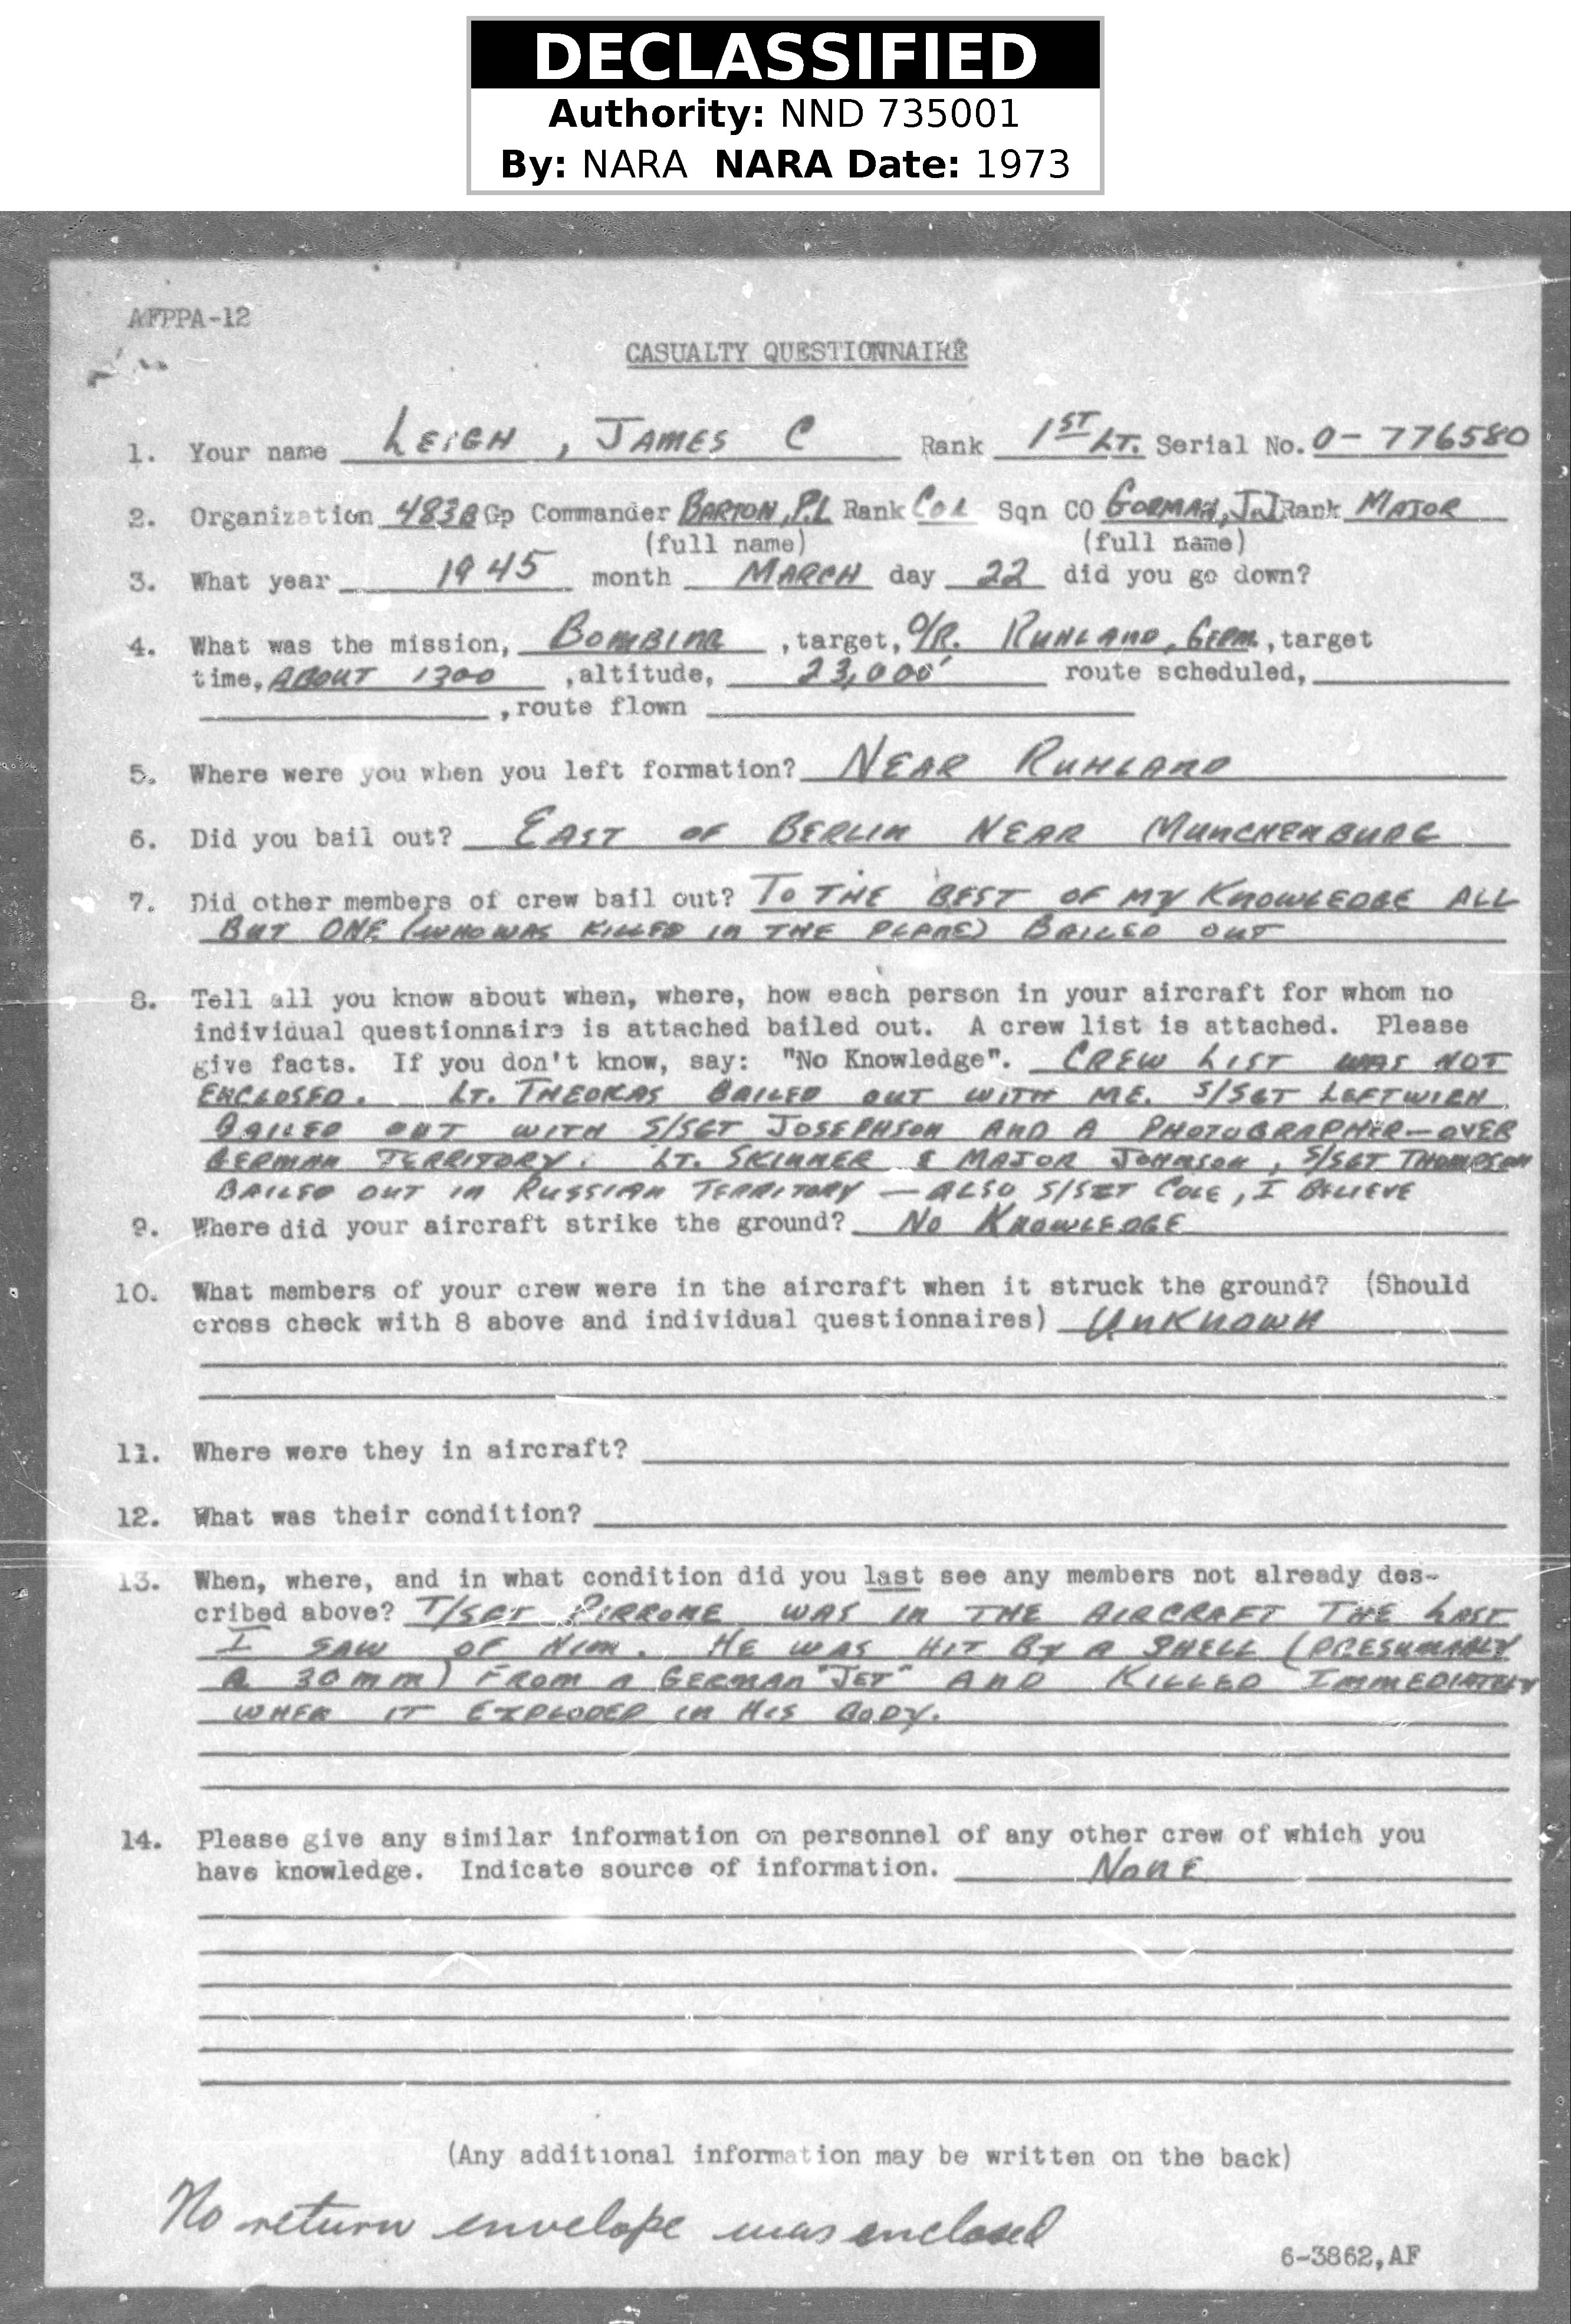 DECLASSIFIED
Authority: NND 735001
By: NARA NARA Date: 1973
AFPPA-12
CASUALTY QUESTIONNAIRE
1. Your name LEIGH, JAMES C Rank 1ST LT. Serial No. O-776580
2. Organization 483B Gp Commander BARTON, P.L Rank COL Sqn CO GORMAN, J.J Rank MAJOR
(full name) (full name)
3. What year 1945 month MARCH day 22 did you go down?
4. What was the mission, BOMBING, target, O/R. RUHLAND, GERM., target
time, ABOUT 1300, altitude, 23,000' route scheduled,
, route flown
5. Where were you when you left formation? NEAR RUHLAND
6. Did you bail out? EAST OF BERLIN NEAR MUNCHENBURG
7. Did other members of crew bail out? TO THE BEST OF MY KNOWLEDGE ALL
BUT ONE (WHO WAS KILLED IN THE PLANE) BAILED OUT
8. Tell all you know about when, where, how each person in your aircraft for whom no
individual questionnaire is attached bailed out. A crew list is attached. Please
give facts. If you don't know, say: "No Knowledge". CREW LIST WAS NOT
ENCLOSED. LT. THEOKAS BAILED OUT WITH ME. S/SGT LEFTWICH
BAILED OUT WITH S/SGT JOSEPHSON AND A PHOTOGRAPHER—OVER
GERMAN TERRITORY. LT. SKINNER & MAJOR JOHNSON, S/SGT THOMPSON
BAILED OUT IN RUSSIAN TERRITORY — ALSO S/SGT COLE, I BELIEVE
9. Where did your aircraft strike the ground? NO KNOWLEDGE
10. What members of your crew were in the aircraft when it struck the ground? (Should
cross check with 8 above and individual questionnaires) UNKNOWN
11. Where were they in aircraft?
12. What was their condition?
13. When, where, and in what condition did you last see any members not already des-
cribed above? T/SGT PIRRONE WAS IN THE AIRCRAFT THE LAST
I SAW OF HIM. HE WAS HIT BY A SHELL (PRESUMABLY
A 30MM) FROM A GERMAN "JET" AND KILLED IMMEDIATELY
WHEN IT EXPLODED IN HIS BODY.
14. Please give any similar information on personnel of any other crew of which you
have knowledge. Indicate source of information. NONE
(Any additional information may be written on the back)
No return envelope was enclosed
6-3862,AF